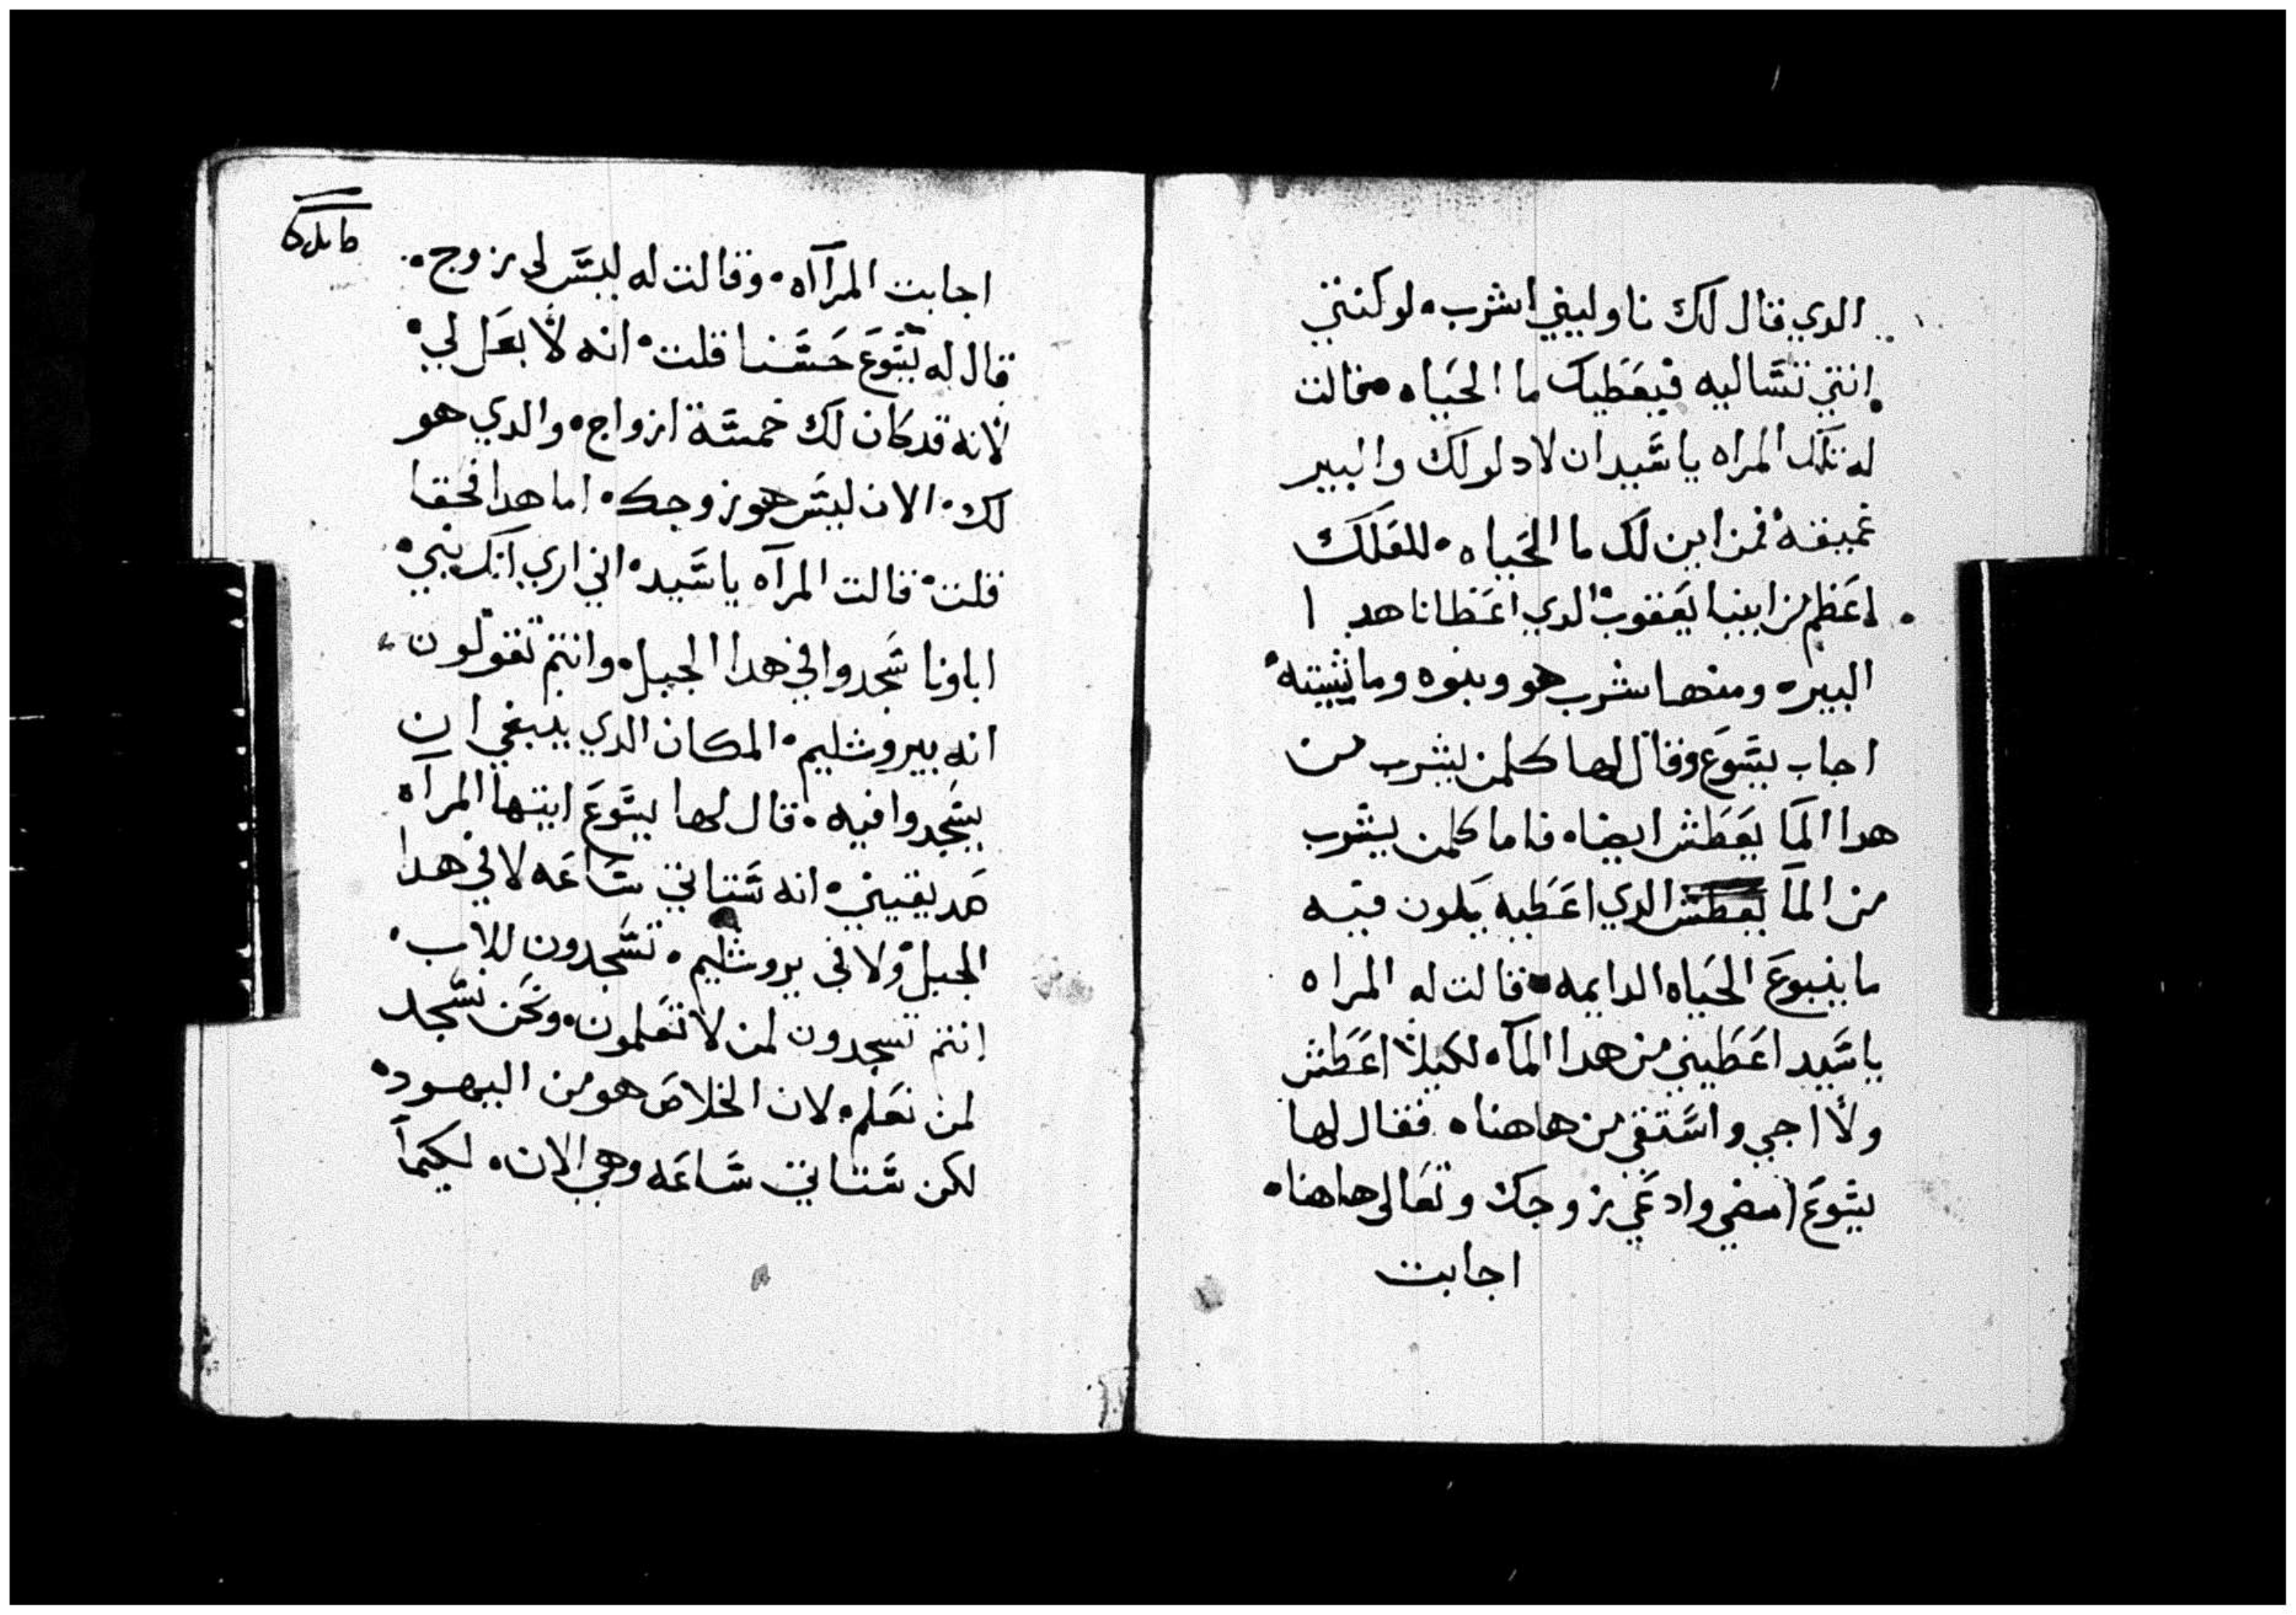 الدي قال لك ناوليني اشرب. لو كنتي
انتي تساليه فيعطيك ما الحياه. قالت
له تلك المراه يا سيد ان لا دلو لك والبير
عميقه فمن اين لك ما الحياه. للعلك
اعظم من ابينا يعقوب الدي اعطانا هدا
البيره ومنها شرب هو وبنوه وماشيته
اجاب يسوع وقال لها كلمن يشرب من
هدا الما يعطش ايضا. فاما كلمن يشرب
من الما الدي اعطيه يكون فيه
ما ينبوع الحياه الدايمه. قالت له المراه
يا سيد اعطيني من هدا الماه لكيلا اعطش
ولا اجي واستقي من هاهنا. فقال لها
يسوع امضي وادعي زوجك وتعالي هاهنا.
اجابت
اجابت المرآه. وقالت له ليس لي زوج.
قال له يسوع حسنا قلت. انه لا بعل لي.
لانه قد كان لك خمسة ازواج. والدي هو
لك. الان ليس هو زوجك. اما هدا فحقا
قلت. قالت المرآه يا سيد. اني اري انك نبي.
اباونا سجدوا في هدا الجبل. وانتم تقولون
انه بيروشليم. المكان الدي ينبغي ان
يسجدوا فيه. قال لها يسوع ايتها المرآه
صدقيني. انه ستاتي ساعه لا في هدا
الجبل ولا في يروشليم. تسجدون للاب.
انتم تسجدون لمن لا تعلمون. ونحن نسجد
لمن نعلم. لان الخلاص هو من اليهود.
لكن ستاتي ساعه وهي الان. لكيما